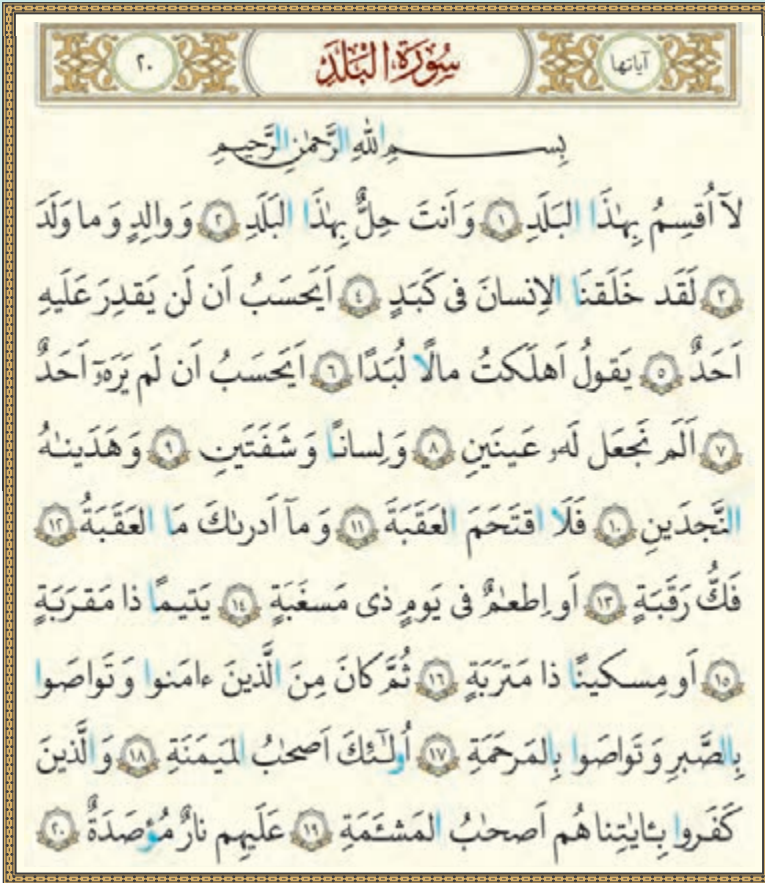 آیاتها سُورَةُ البَلَدِ ٢٠
بِسمِ اللهِ الرَّحمٰنِ الرَّحیمِ
لآ اُقسِمُ بِهٰذَا البَلَدِ ١ وَ اَنتَ حِلٌّ بِهٰذَا البَلَدِ ٢ وَ والِدٍ وَ ما وَلَدَ
٣ لَقَد خَلَقنَا الاِنسانَ فی کَبَدٍ ٤ اَیَحسَبُ اَن لَن یَقدِرَ عَلَیهِ
اَحَدٌ ٥ یَقولُ اَهلَکتُ مالًا لُبَدًا ٦ اَیَحسَبُ اَن لَم یَرَهۥٓ اَحَدٌ
٧ اَلَم نَجعَل لَهۥ عَینَینِ ٨ وَ لِسانًا وَ شَفَتَینِ ٩ وَ هَدَینٰهُ
النَّجدَینِ ١٠ فَلَا اقتَحَمَ العَقَبَةَ ١١ وَ مآ اَدرىٰكَ مَا العَقَبَةُ ١٢
فَكُّ رَقَبَةٍ ١٣ اَو اِطعٰمٌ فی یَومٍ ذی مَسغَبَةٍ ١٤ یَتیمًا ذا مَقرَبَةٍ
١٥ اَو مِسکینًا ذا مَترَبَةٍ ١٦ ثُمَّ کانَ مِنَ الَّذینَ ءامَنوا وَ تَواصَوا
بِالصَّبرِ وَ تَواصَوا بِالمَرحَمَةِ ١٧ اُولٰٓئِكَ اَصحٰبُ المَیمَنَةِ ١٨ وَ الَّذینَ
کَفَروا بِـٔایٰتِنا هُم اَصحٰبُ المَشـَٔمَةِ ١٩ عَلَیهِم نارٌ مُؤصَدَةٌ ٢٠